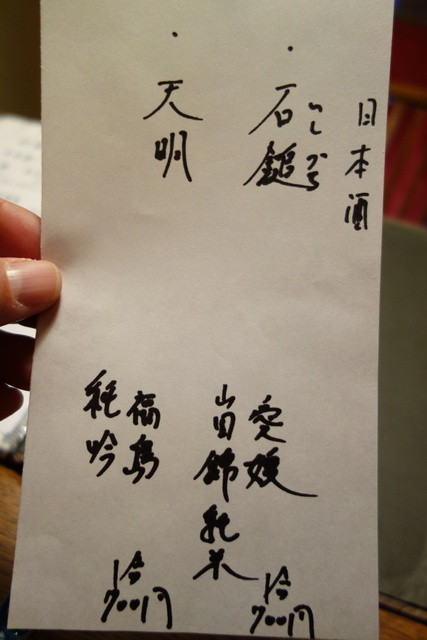 日本酒
・石鎚
いしづち
愛媛
山田錦純米
1合
700円
・天明
福島
純吟
1合
700円